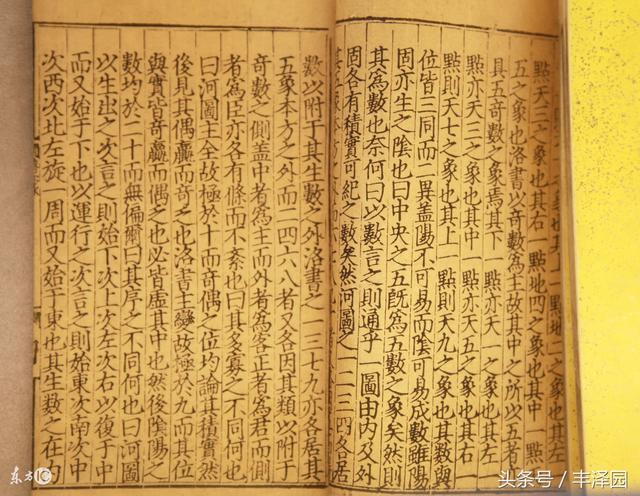 也其上一點地二之象也其左
點天三之象也其右一點地四之象也其中一點
五之象也洛書以奇數爲主故其中之所以五者
具五奇數之象焉其下一點亦天一之象也其左
點亦天三之象也其中一點亦天五之象也其右一
點則天七之象也其上一點則天九之象也其數與
位皆三同而二異蓋陽不可易而陰可易成數雖陽
固亦生之陰也曰中央之五旣爲五數之象矣然則
其爲數也奈何曰以數言之則通乎一圖由内及外
固各有積實可紀之數矣然河圖之一二三四各居
其五象本方之外
數以附于其生數之外洛書之一三七九亦各居其
五象本方之外而二四六八者又各因其類以附于
奇數之側蓋中者爲主而外者爲客正者爲君而側
者爲臣亦各有條而不紊也曰其多寡之不同何也
曰河圖主全故極於十而奇偶之位均論其積實然
後見其偶贏而奇乏也洛書主變故極於九而其位
與實皆奇贏而偶乏也必皆虚其中也然後陰陽之
數均於二十而無偏爾曰其序之不同何也曰河圖
以生出之次言之則始下次上次左次右以復于中
而又始于下也以運行之次言之則始東次南次中
次西次北左旋一周而又始于東也其生數之在内
东方IC
头条号 / 丰泽园